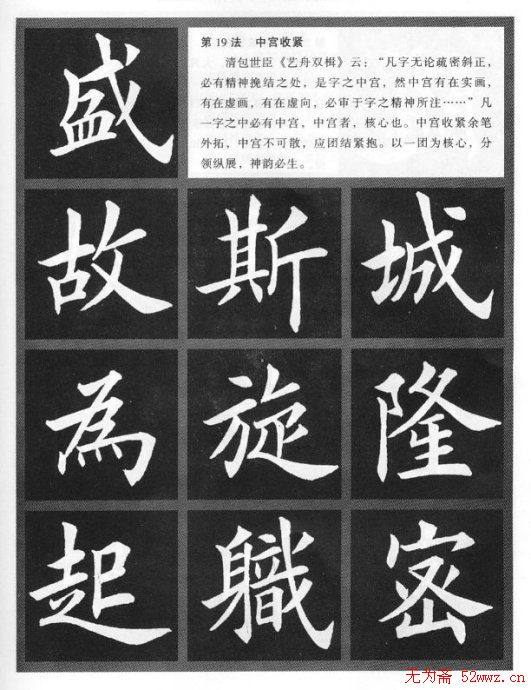 第19法 中宫收紧
清包世臣《艺舟双楫》云：“凡字无论疏密斜正，
必有精神挽结之处，是字之中宫，然中宫有在实画，
有在虚画，有在虚向，必审于字之精神所注……”凡
一字之中必有中宫，中宫者，核心也。中宫收紧余笔
外拓，中宫不可散，应团结紧抱。以一团为核心，分
领纵展，神韵必生。
盛
故 斯 城
為 旋 隆
起 職 密
无为斋 52wwz.cn